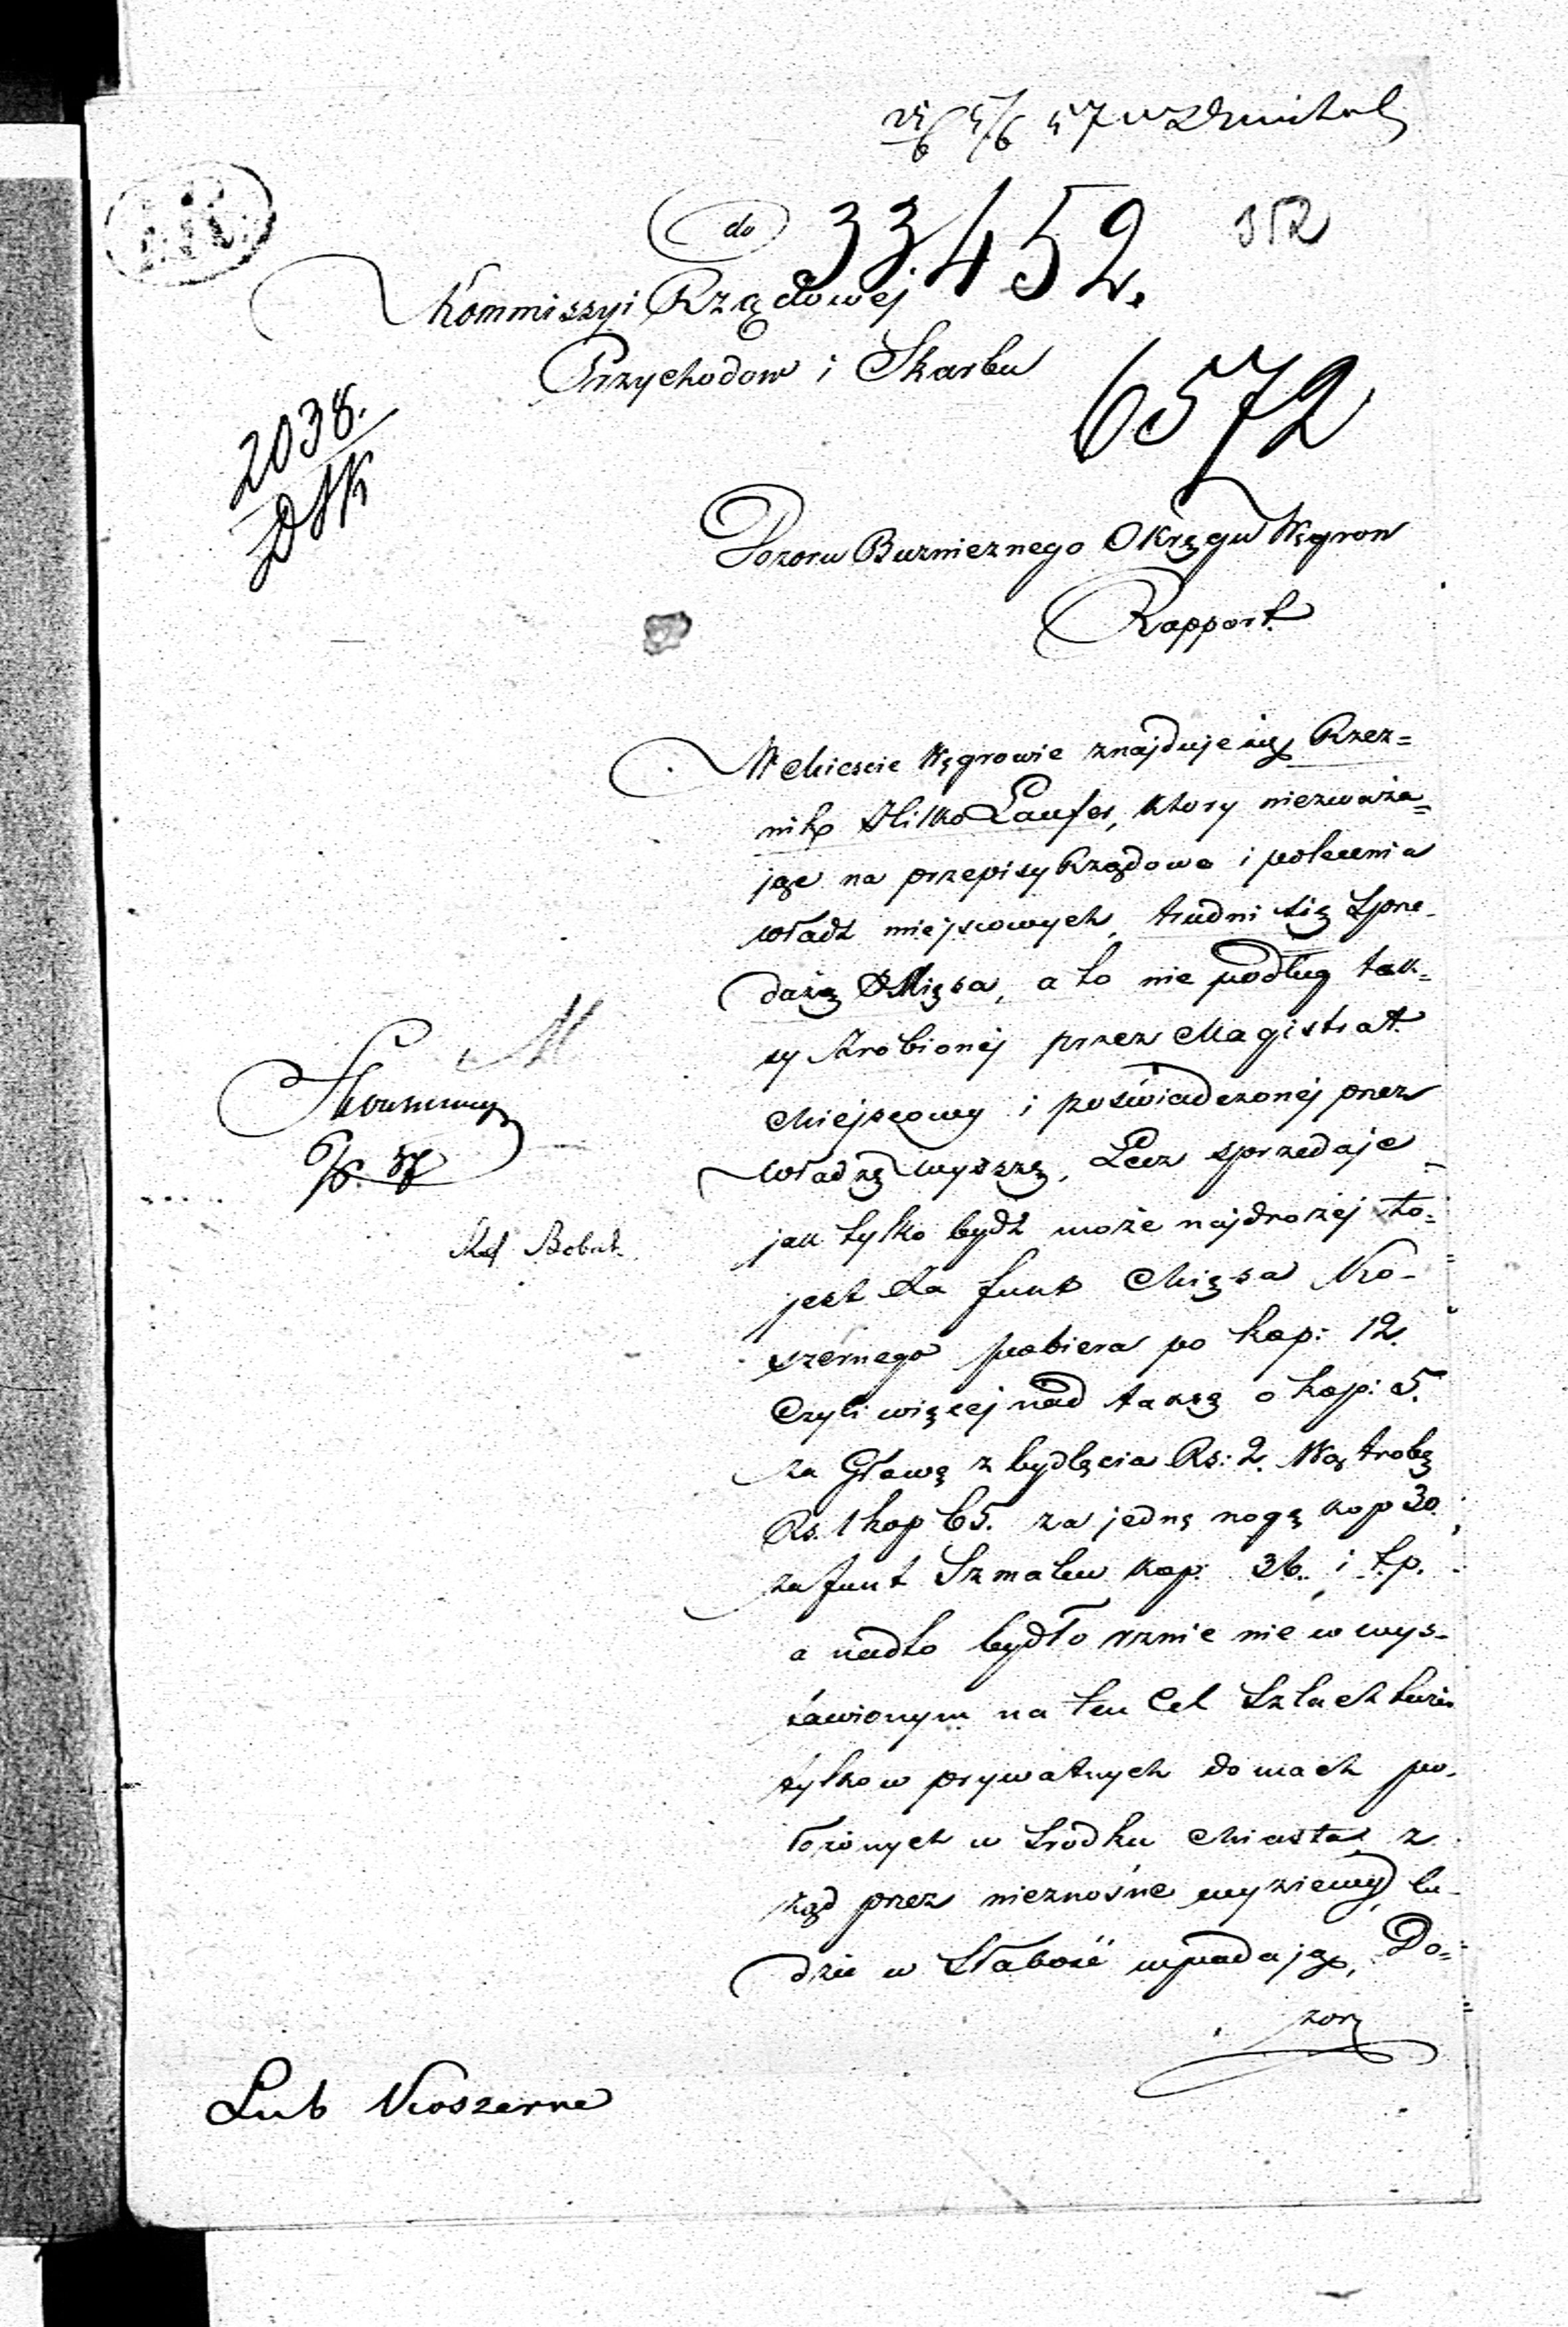 do 33.452.
352
Kommiszyi Rządowej
Przychodow i Skarbu
6572
2038.
Dozoru Bużnicznego Okręgu Węgrow
Rapport.
W Mieście Węgrowie znajduje się Rzez=
nik Ilitko Laufer, ktory niezwaza=
jąc na przepisy Rządowe i polecenia
władz miejscowych, trudni się Sprze-
dażą Mięsa, a to nie podług tak=
sy Zrobionej przez Magistrat
Miejscowy i poświadczonej przez
Władzę wyższą, Lecz sprzedaje
jak tylko bydź może najdrożej to=
jest Za funt Mięsa Ko-
szernego pobiera po kop: 12.
Czyli więcej nad taxę o kop: 5.
za Głowę z bydlęcia Rs: 2. Wątrobę
Rs. 1 kop 65. za jednę nogę kop 30.
za funt Szmalcu kop: 36. i t.p.
a nadto bydło rznie nie w wys-
tawionym na ten Cel Szlachtuzie
tylko w prywatnych domach po-
łożonych w Srodku Miasta, z
kąd przez nieznośne wyziewy, lu-
dzie w Słabość wpadają, Do=
zor
Lub Koszerne